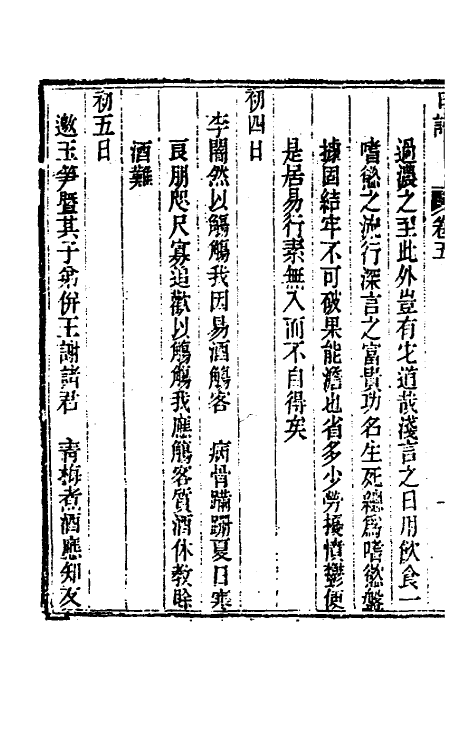 卷五
過濃之至此外豈有它道哉淺言之日用飲食一
嗜慾之流行深言之富貴功名生死總為嗜慾盤
據固結牢不可破果能澹也省多少勞擾憤鬱便
是居易行素無入而不自得矣
初四日
李闇然以觴觴我因易酒觴客 病骨蹣跚夏日寒
良朋咫尺寡追歡以觴觴我應觴客質酒休教賒
酒難
初五日
邀玉笋暨其子弟併王謝諸君 青梅煮酒應知友